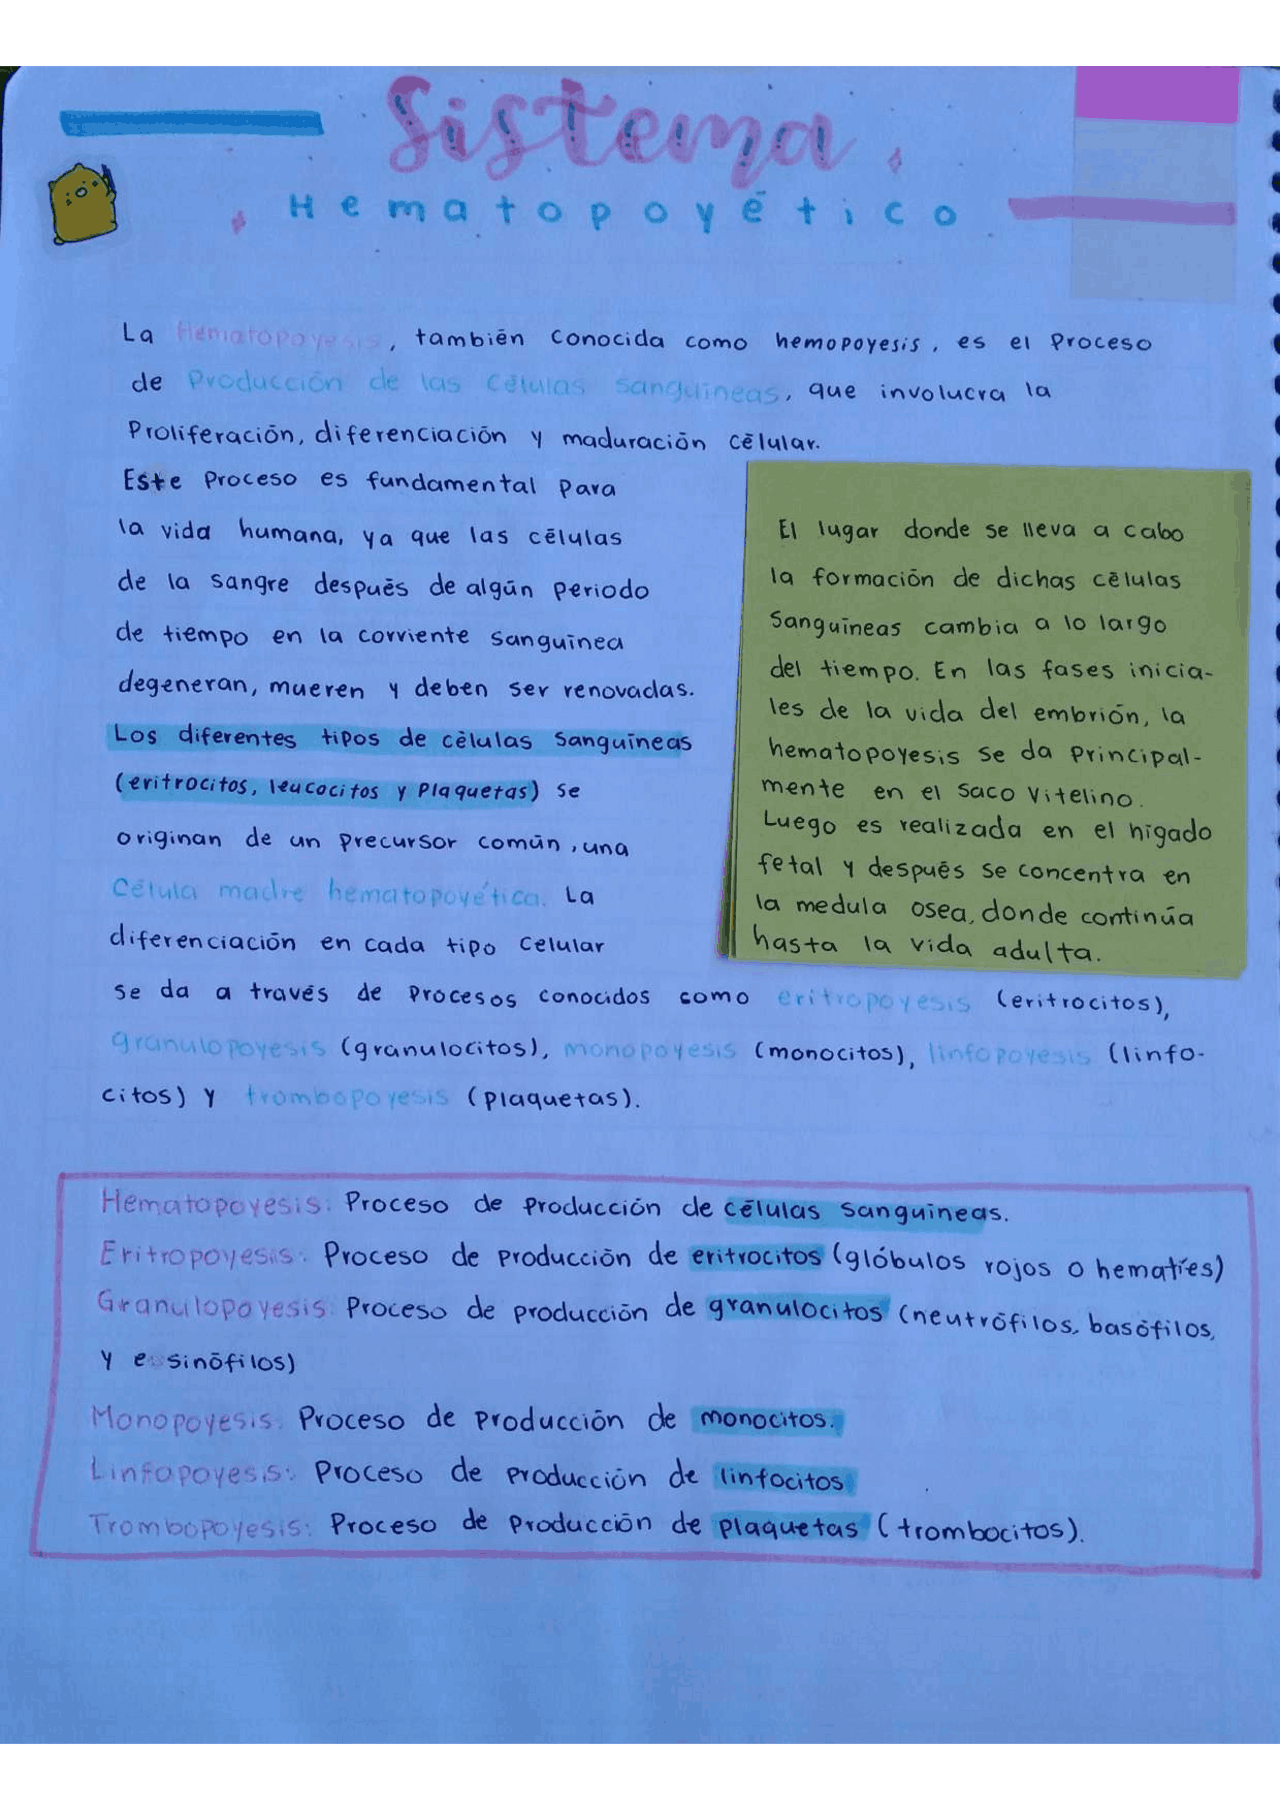 Sistema
Hematopoyético
La Hematopoyesis, también conocida como hemopoyesis, es el Proceso
de Producción de las Células Sanguíneas, que involucra la
Proliferación, diferenciación y maduración célular.
Este Proceso es fundamental Para
la vida humana, ya que las células
de la sangre después de algún Periodo
de tiempo en la corriente sanguínea
degeneran, mueren y deben ser renovadas.
Los diferentes tipos de cèlulas Sanguíneas
(eritrocitos, leucocitos y Plaquetas) se
originan de un precursor común, una
Célula madre hematopoyética. La
diferenciación en cada tipo Celular
se da a través de Procesos conocidos como eritropoyesis (eritrocitos),
granulopoyesis (granulocitos), monopoyesis (monocitos), linfopoyesis (linfo-
citos) y trombopoyesis (plaquetas).
El lugar donde se lleva a cabo
la formación de dichas células
Sanguíneas cambia a lo largo
del tiempo. En las fases inicia-
les de la vida del embrión, la
hematopoyesis se da Principal-
mente en el saco Vitelino.
Luego es realizada en el hígado
fetal y después se concentra en
la medula osea, donde continúa
hasta la vida adulta.
Hematopoyesis: Proceso de Producción de células sanguíneas.
Eritropoyesis: Proceso de Producción de eritrocitos (glóbulos rojos o hematíes)
Granulopoyesis: Proceso de producción de granulocitos (neutrófilos, basófilos,
y eosinófilos)
Monopoyesis: Proceso de Producción de monocitos.
Linfopoyesis: Proceso de Producción de linfocitos
Trombopoyesis: Proceso de Producción de plaquetas (trombocitos).